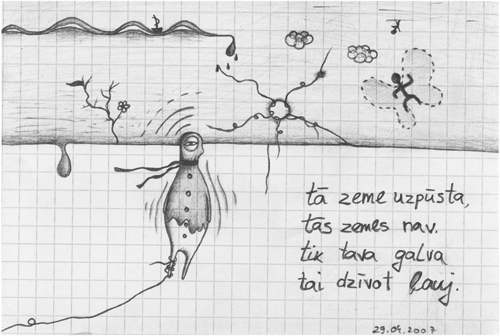 tā zeme uzpūsta,
tās zemes nav.
tik tava galva
tai dzīvot ļauj.
29.04.2007